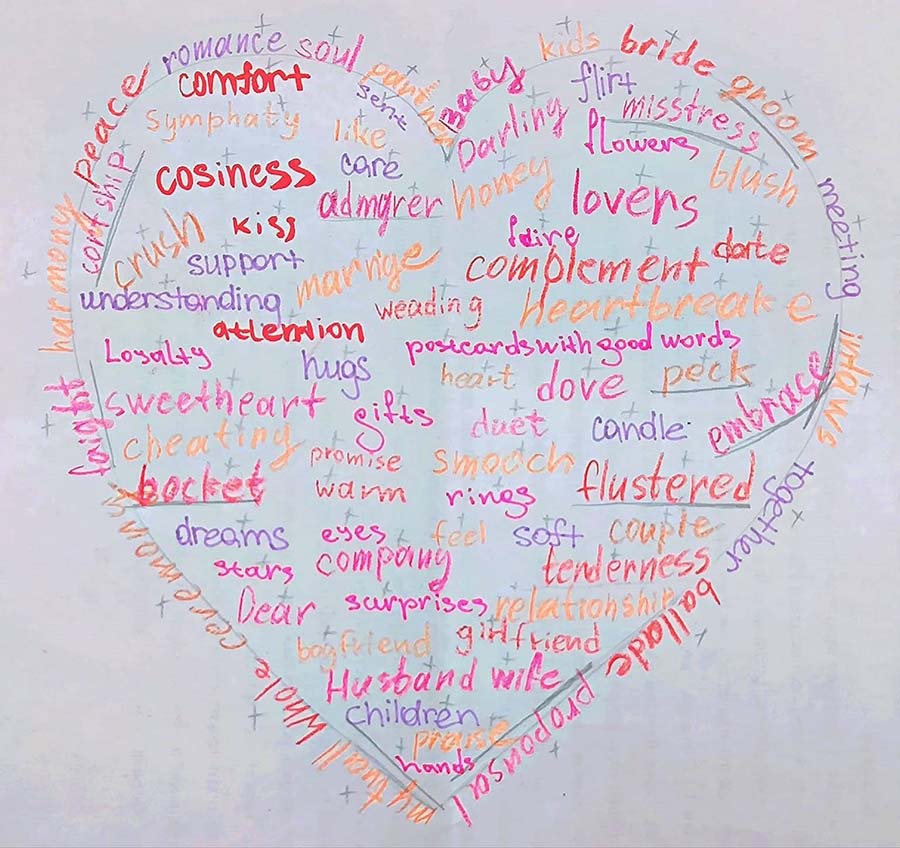 romance soul
partner
baby kids bride groom
peace
comfort
flirt
sent
misstress
Symphaty
like
Darling
flowers
cortship
cosiness
care
honey
blush
admyrer
lovers
meeting
harmony
crush
kiss
complement
date
support
marrige
understanding
weading
Heartbreake
attention
postcards with good words
Loyalty
hugs
heart
dove
peck
inlaws
embrace
sweetheart
gifts
duet
candle
faithful
cheating
promise
smooch
bocket
warm
rings
flustered
together
dreams
eyes
feel
soft
couple
stars
company
tenderness
ceremony
Dear
surprises
relationship
ballade
boyfriend
girlfriend
Husband wife
proposal
Whole
children
praise
hands